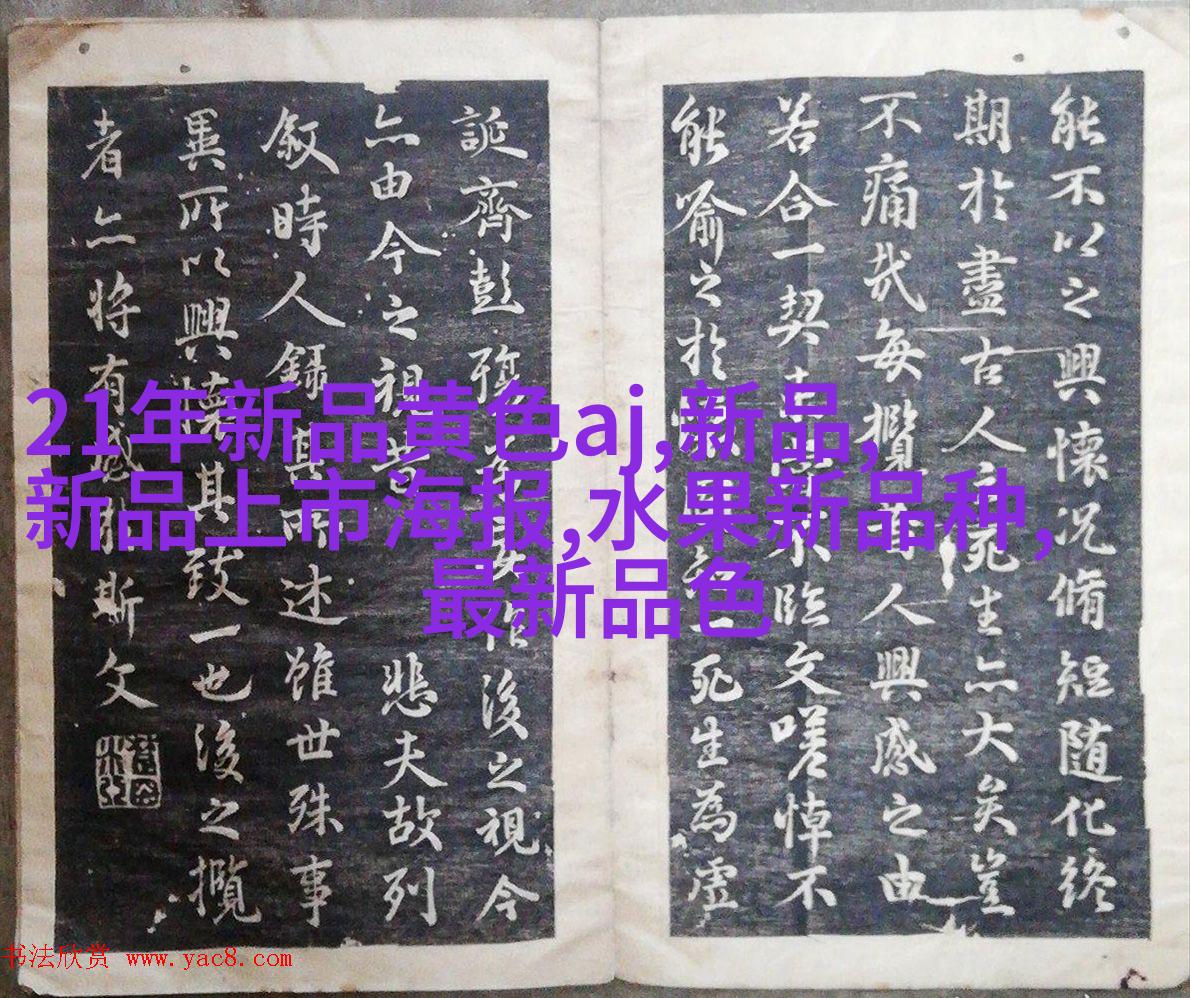 能不以之興懷況脩短隨化終
期於盡古人死生亦大矣豈
不痛哉每攬人興感之由
若合一契不臨文嗟悼不
能喻之於一死生為虛
誕齊彭殤後之視今
亦由今之視昔悲夫故列
敘時人錄其所述雖世殊事
異所以興懷其致一也後之攬
者亦將有感斯文
21年新品黄色aj,新品,
新品上市海报,水果新品种,
最新品色
书法欣赏 www.yac8.com